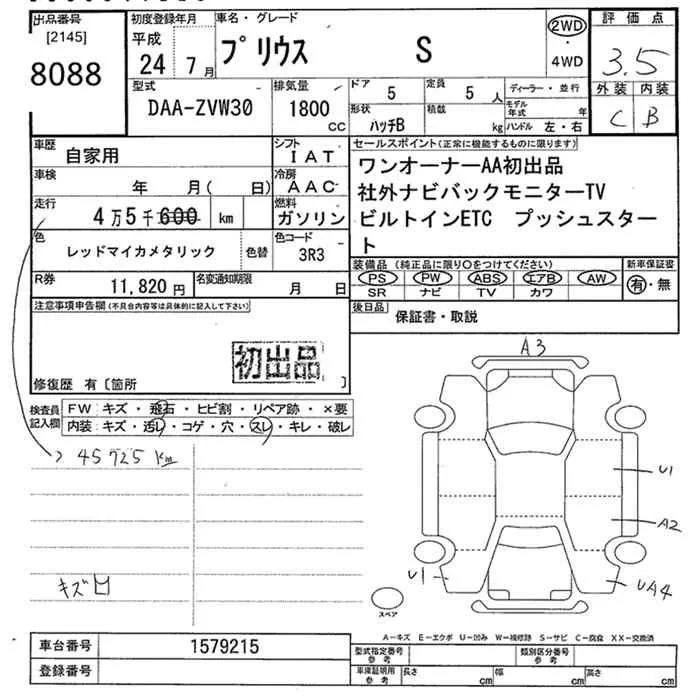 出品番号 初度登録年月 車名・グレード 2WD 評価点
[2145] 平成 プリウス S ・ 3.5
8088 24 7月 4WD
型式 排気量 ドア 定員 ディーラー・並行 外装 内装
DAA-ZVW30 1800 CC 5 5人 モデル年式 年 C B
形状 積載
ハッチB kg ハンドル 左・右
車歴 自家用 シフト IAT セールスポイント(正常に機能するものに限ります)
車検 年 月( 日) 冷房 AAC ワンオーナーAA初出品
走行 4万5千600 km 燃料 ガソリン 社外ナビバックモニターTV
ビルトインETC プッシュスター
ト
色 レッドマイカメタリック 色替 色コード 3R3
装備品(純正品に限り○をつけてください) 新車保証書
PS PW ABS エアB AW 有・無
SR ナビ TV カワ
R券 11,820円 名変通知期限 月 日
後日品 保証書・取説
注意事項申告欄(不具合内容等は具体的に記入して下さい)
初出品
修復歴 有〔箇所 〕
検査員記入欄 FW キズ・飛石・ヒビ割・リペア跡・×要
内装: キズ・汚レ・コゲ・穴・スレ・キレ・破レ
45725 km
キズ
A3
U1
A2
U1
UA4
スペア
A-キズ E-エクボ U-凹み W-補修跡 S-サビ C-腐食 XX-交換済
車台番号 1579215 型式指定番号 参考 類別区分番号 参考
登録番号 車庫証明用 参考 長さ cm 幅 cm 高さ cm